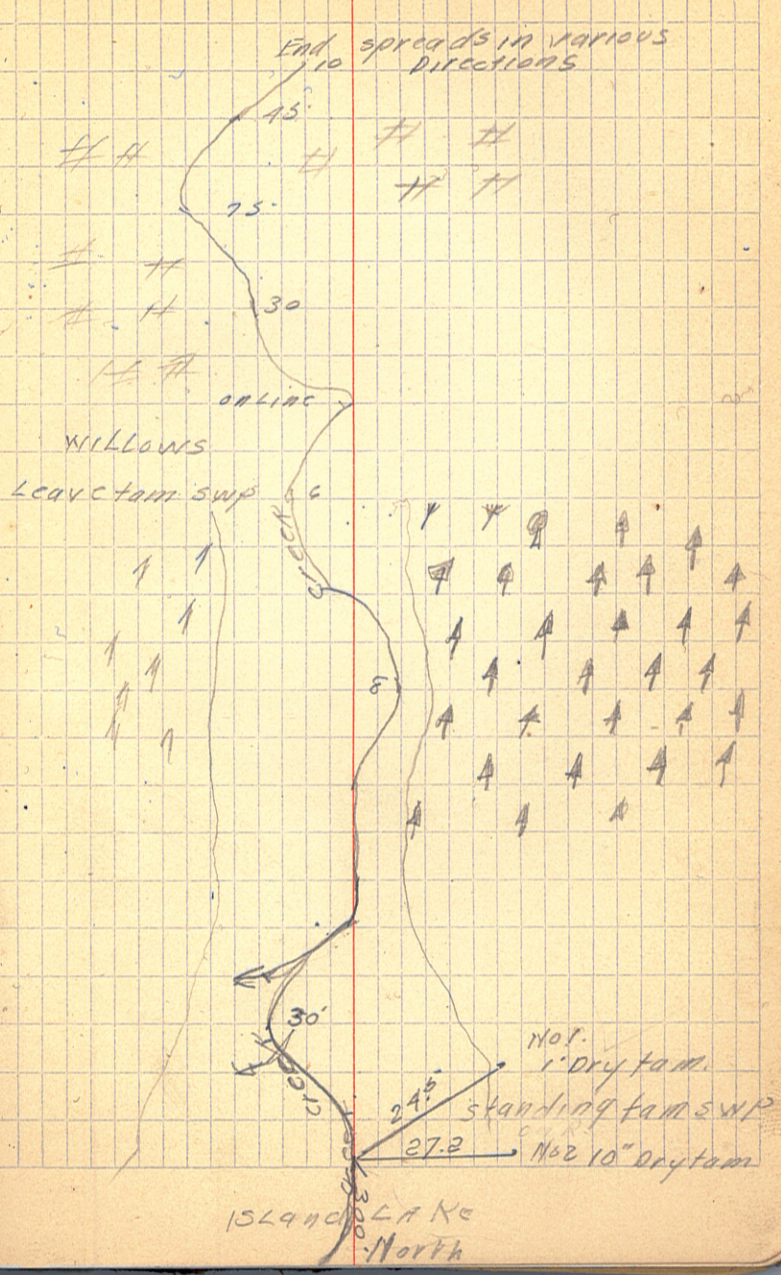 End spreads in various
10 Directions
45
75
30
on Line
WILLOWS
Leave tam swp
6
Creek
8
30
Creek
No 1.
1' Dry tam.
24.5
standing tam swp
27.2
No 2 10" Dry tam
300
ISLand LAKe
North